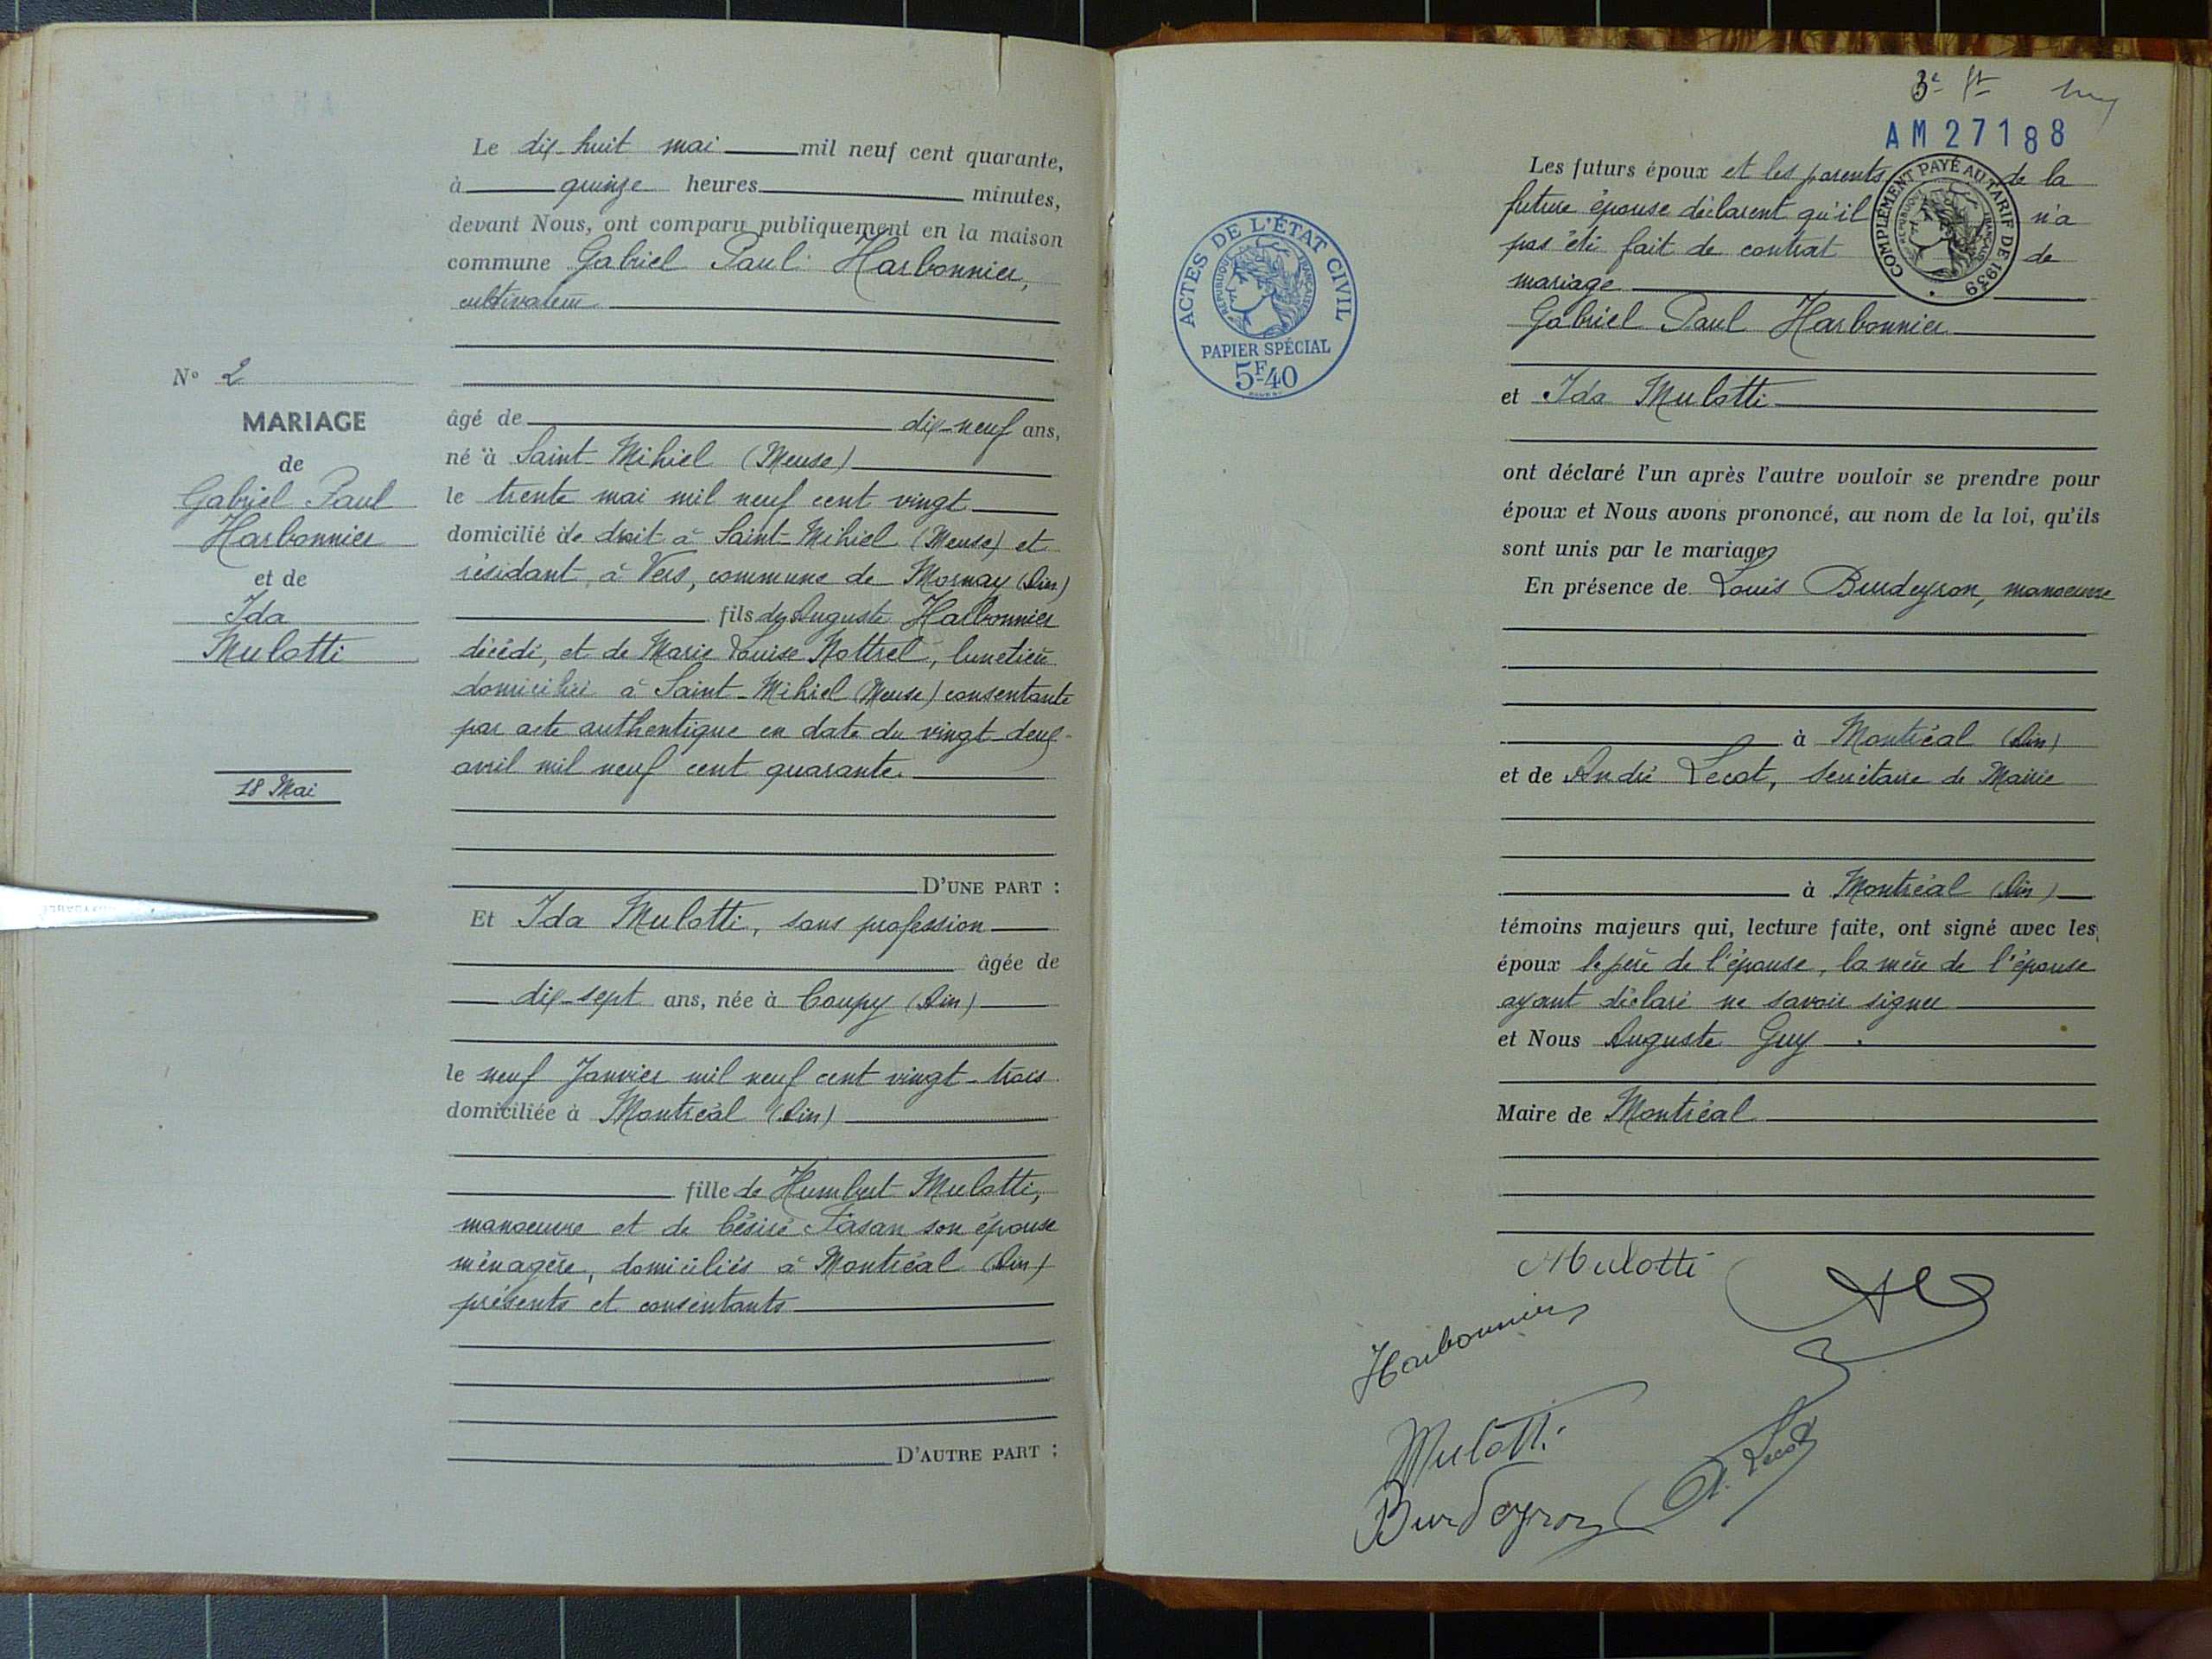 Le dix-huit mai mil neuf cent quarante,
à quinze heures minutes,
devant Nous, ont comparu publiquement en la maison
commune Gabriel Paul Harbonnier,
cultivateur
N° 2
MARIAGE
de
Gabriel Paul
Harbonnier
et de
Ida
Mulotti
18 Mai
âgé de dix-neuf ans,
né à Saint-Mihiel (Meuse)
le trente mai mil neuf cent vingt
domicilié de droit à Saint-Mihiel (Meuse) et
résidant à Vers, commune de Mornay (Ain)
fils de Auguste Harbonnier
décédé, et de Marie Louise Nottrel, lunetière
domiciliée à Saint-Mihiel (Meuse) consentante
par acte authentique en date du vingt-deux
avril mil neuf cent quarante.
D'UNE PART :
Et Ida Mulotti, sans profession
âgée de
dix-sept ans, née à Coupy (Ain)
le neuf Janvier mil neuf cent vingt-trois
domiciliée à Montréal (Ain)
fille de Humbert Mulotti,
manoeuvre et de Césire Fasan son épouse
ménagère, domiciliés à Montréal (Ain)
présents et consentants
D'AUTRE PART :
ACTES DE L'ÉTAT CIVIL
RÉPUBLIQUE FRANÇAISE
PAPIER SPÉCIAL
5F40
3e ft
AM 27188
COMPLÉMENT PAYÉ AU TARIF DE 1939
RÉPUBLIQUE FRANÇAISE
Les futurs époux et les parents de la
future épouse déclarent qu'il n'a
pas été fait de contrat de
mariage
Gabriel Paul Harbonnier
et Ida Mulotti
ont déclaré l'un après l'autre vouloir se prendre pour
époux et Nous avons prononcé, au nom de la loi, qu'ils
sont unis par le mariage
En présence de Louis Burdeyron, manoeuvre
à Montréal (Ain)
et de André Lecot, secrétaire de Mairie
à Montréal (Ain)
témoins majeurs qui, lecture faite, ont signé avec les
époux le père de l'épouse, la mère de l'épouse
ayant déclaré ne savoir signer
et Nous Auguste Guy
Maire de Montréal
Mulotti
Harbonnier
Mulotti
Burdeyron
A. Lecot